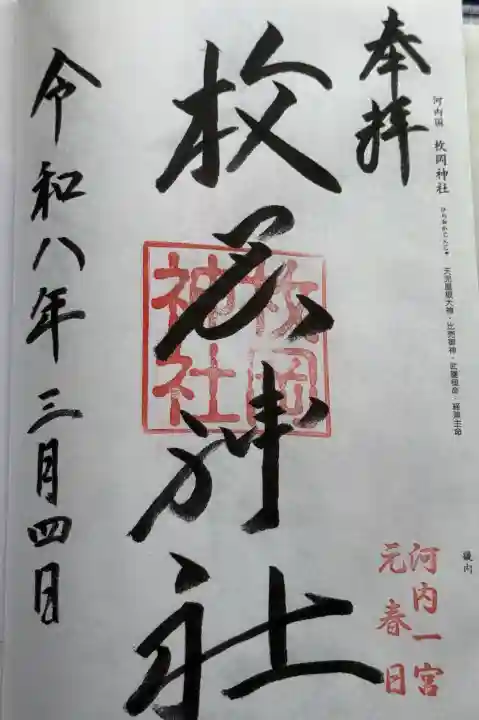 奉拝
河内国 枚岡神社 ひらおかじんじゃ 天児屋根大神・比売御神・武甕槌命・経津主命
畿内
河内一宮
元春日
枚岡神社
枚岡
神社
令和八年三月四日